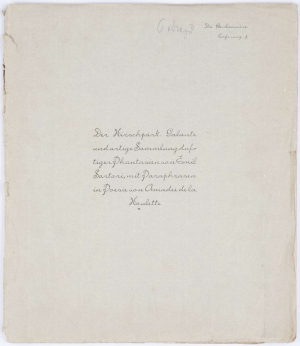 Der Hirschpark. Galante
und artige Sammlung duf-
tiger Phantasien von Emil
Sartori, mit Paraphrasen
in Poesie von Amadée de la
Houlette